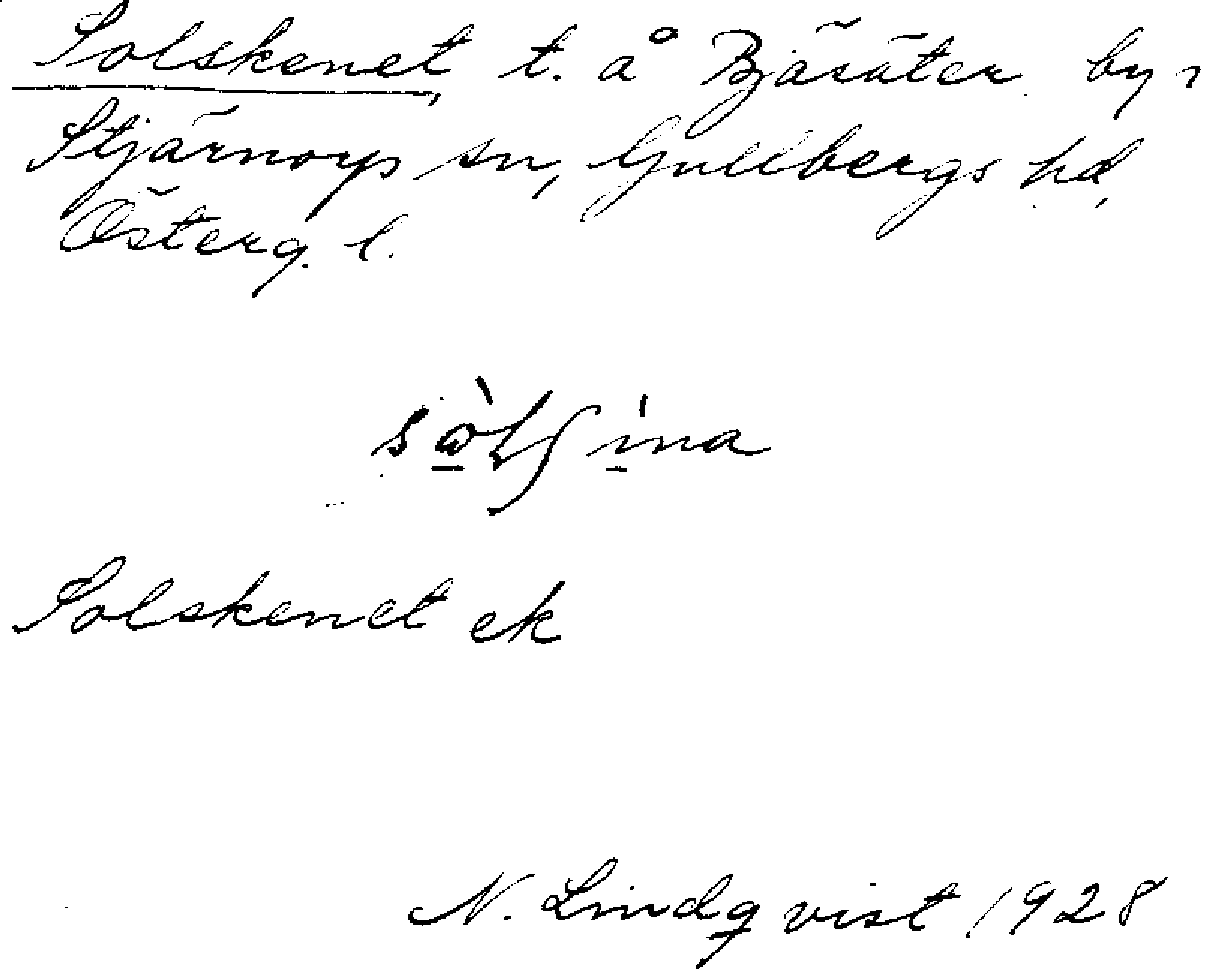 Solskenet, t. å Bjäsäter by i
Stjärnorps sn, Gullbergs hd,
Österg. l.
Solskenet ek
N. Lindqvist 1928